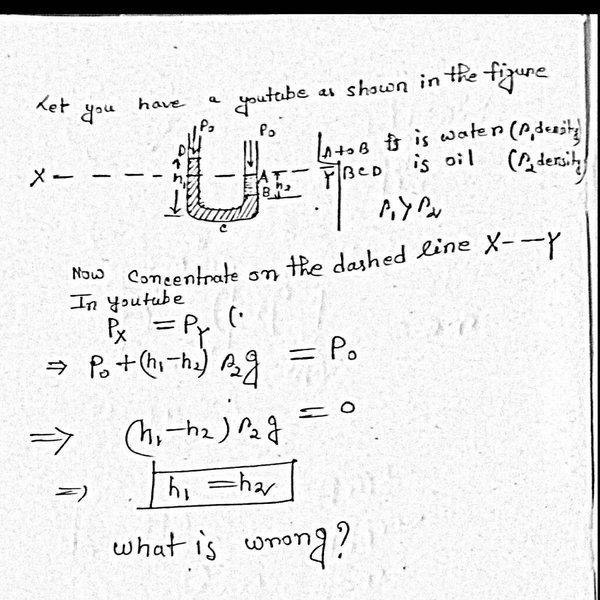 Let you have a youtube as shown in the figure
P₀ P₀
D
A to B is water (ρ₁ density)
X Y
h₁ A h₂
BCD is oil (ρ₂ density)
B
C
ρ₁ > ρ₂
Now concentrate on the dashed line X---Y
In youtube
P_X = P_Y (.
⇒ P₀ + (h₁-h₂) ρ₂g = P₀
⇒ (h₁-h₂) ρ₂g = 0
⇒ h₁ = h₂
what is wrong?